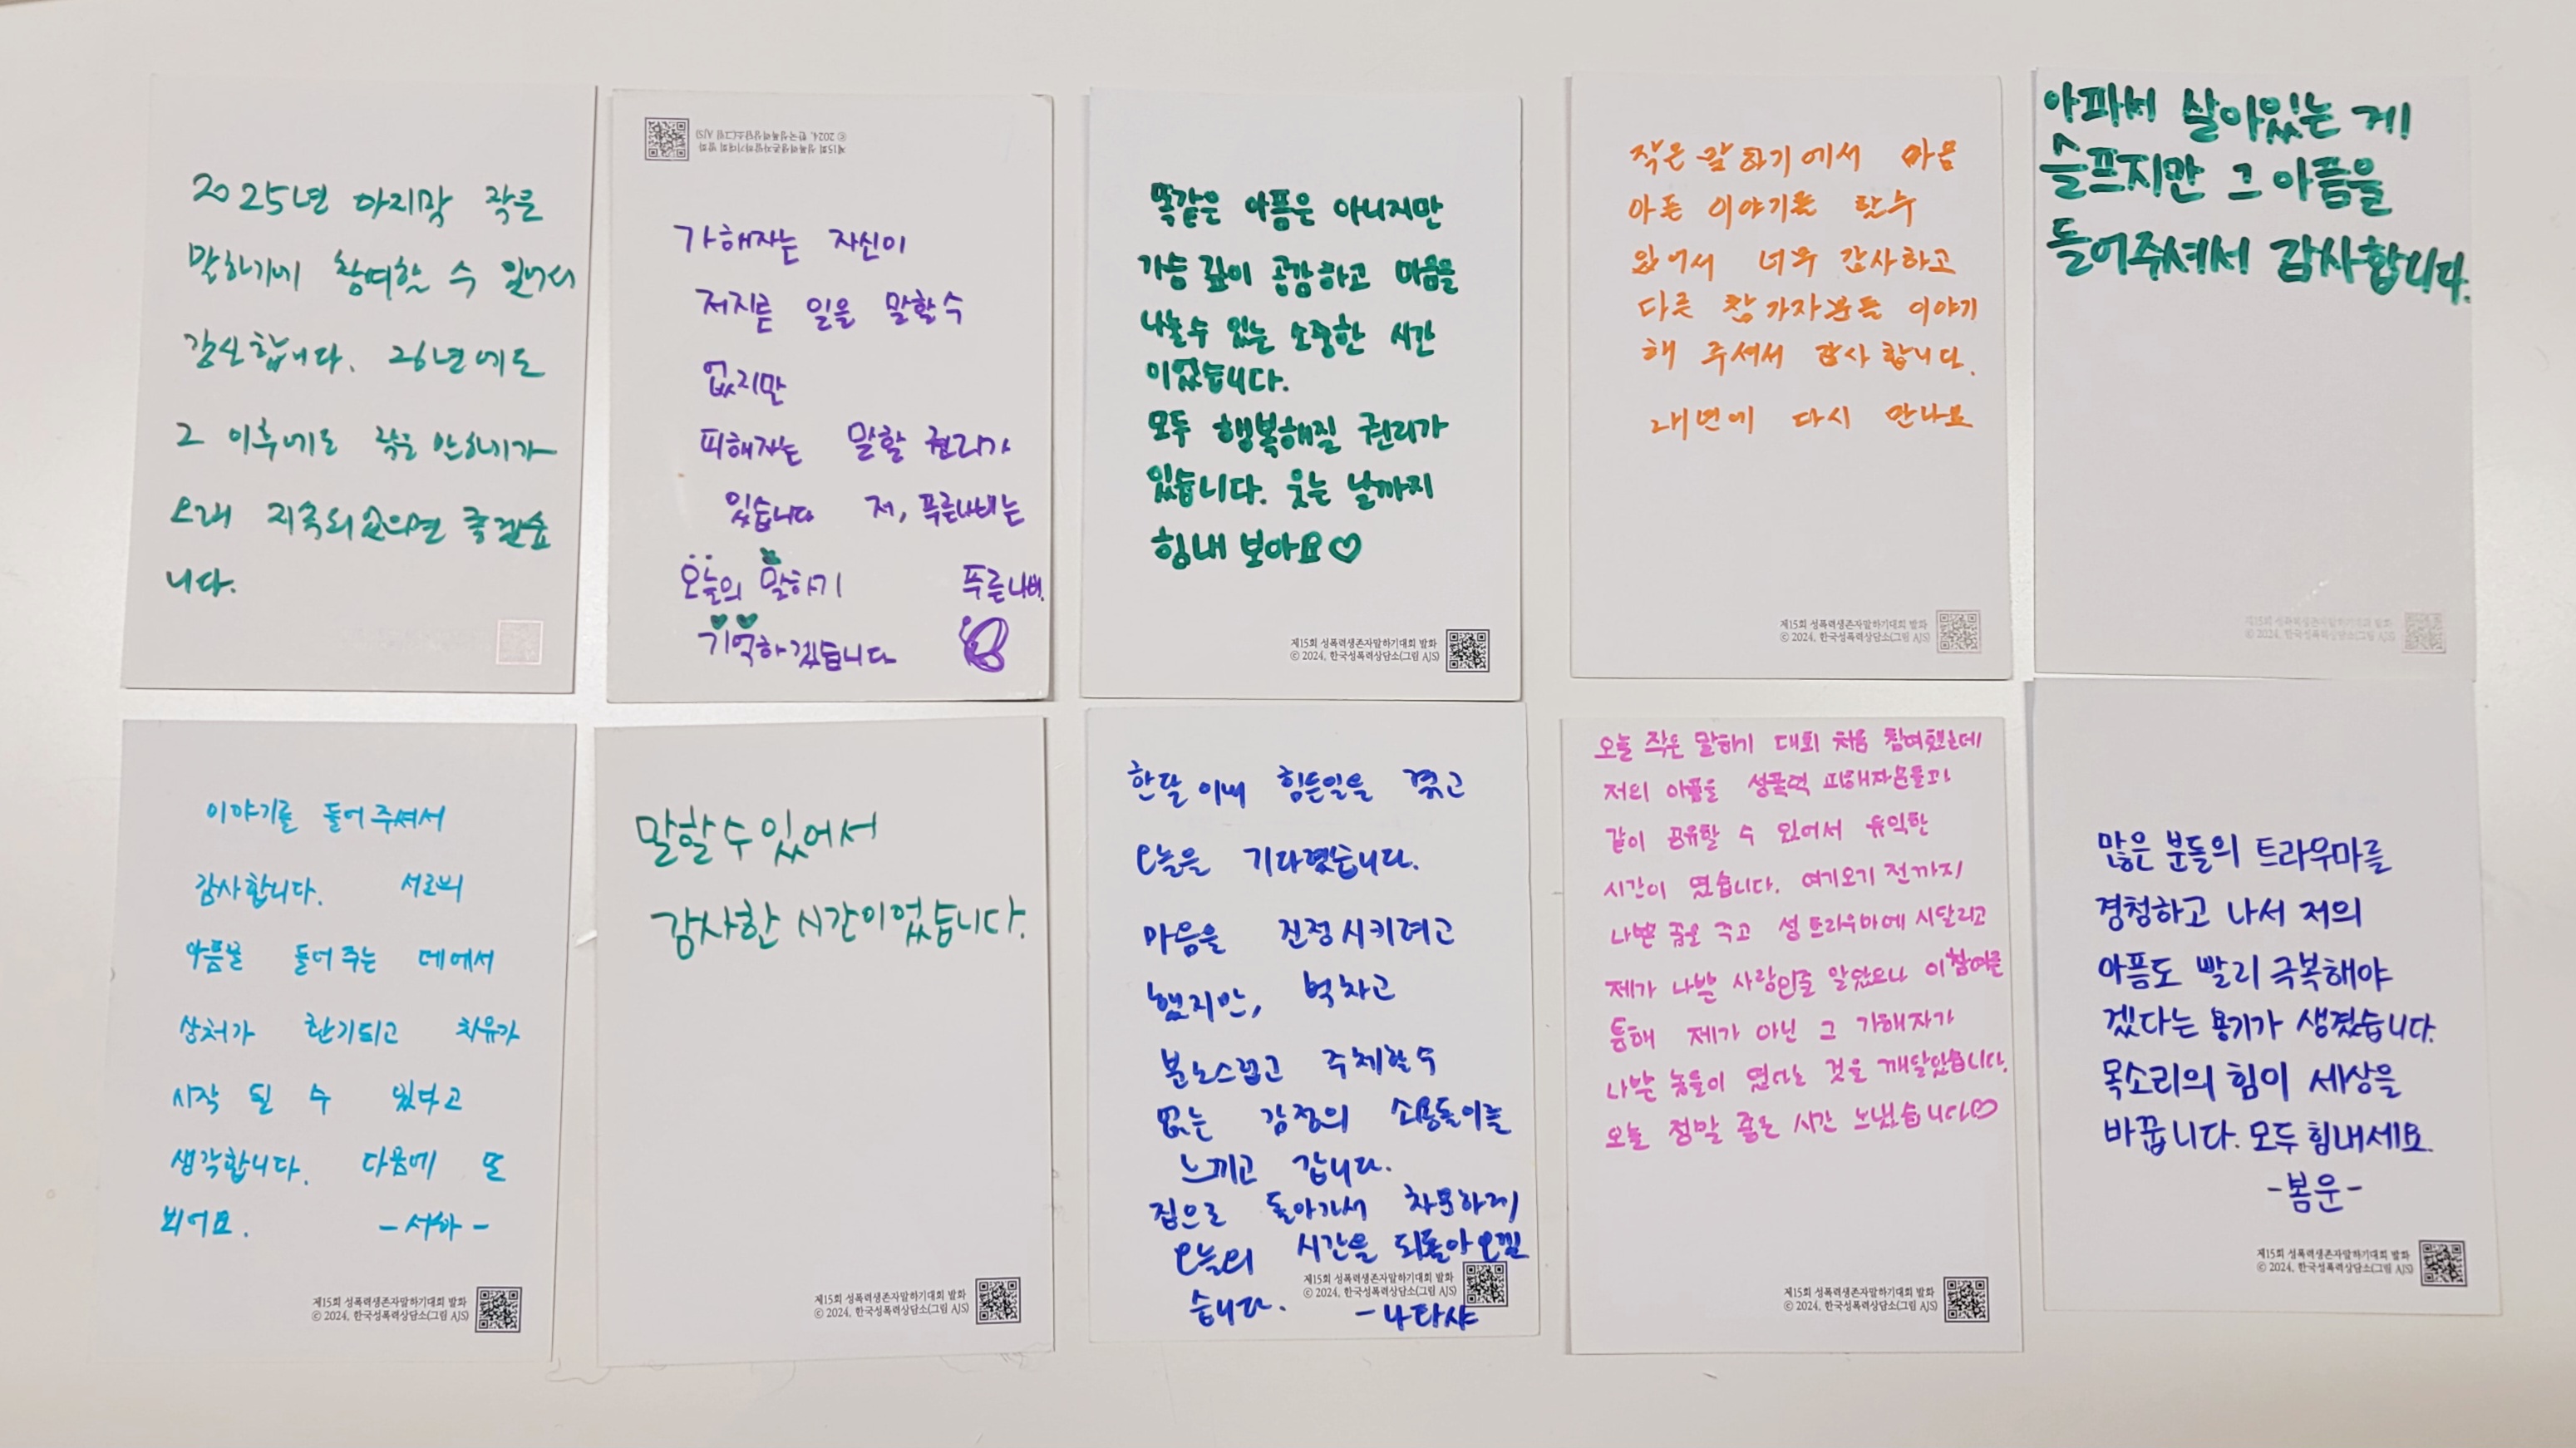 2025년 마지막 작은
말하기에 참여할 수 있어서
감사합니다. 26년에도
그 이후에도 작은 말하기가
오래 지속되었으면 좋겠습
니다.
제15회 성폭력생존자말하기대회 발화
© 2024, 한국성폭력상담소(그림 AJS)
가해자는 자신이
저지른 일을 말할 수
없지만
피해자는 말할 권리가
있습니다 저, 푸른나비는
오늘의 말하기
기억하겠습니다
푸른나비.
똑같은 아픔은 아니지만
가슴 깊이 공감하고 마음을
나눌수 있는 소중한 시간
이었습니다.
모두 행복해질 권리가
있습니다. 웃는 날까지
힘내 보아요♡
제15회 성폭력생존자말하기대회 발화
© 2024, 한국성폭력상담소(그림 AJS)
작은 말하기에서 마음
아픈 이야기를 할수
있어서 너무 감사하고
다른 참가자분들 이야기
해 주셔서 감사합니다.
내년에 다시 만나요
제15회 성폭력생존자말하기대회 발화
© 2024, 한국성폭력상담소(그림 AJS)
아파서 살아있는 게
슬프지만 그 아픔을
들어주셔서 감사합니다.
제15회 성폭력생존자말하기대회 발화
© 2024, 한국성폭력상담소(그림 AJS)
이야기를 들어 주셔서
감사합니다. 서로의
아픔을 들어 주는 데에서
상처가 환기되고 치유가
시작 될 수 있다고
생각합니다. 다음에 또
뵈어요. -서하-
제15회 성폭력생존자말하기대회 발화
© 2024, 한국성폭력상담소(그림 AJS)
말할 수 있어서
감사한 시간이었습니다.
제15회 성폭력생존자말하기대회 발화
© 2024, 한국성폭력상담소(그림 AJS)
한달 이내 힘든일을 겪고
오늘을 기다렸습니다.
마음을 진정시키려고
했지만, 벅차고
분노스럽고 주체할수
없는 감정의 소용돌이를
느끼고 갑니다.
집으로 돌아가서 차분하게
오늘의 시간을 되돌아오겠
습니다. -나타샤
제15회 성폭력생존자말하기대회 발화
© 2024, 한국성폭력상담소(그림 AJS)
오늘 작은 말하기 대회 처음 참여했는데
저의 아픔을 성폭력 피해자분들과
같이 공유할 수 있어서 유익한
시간이 였습니다. 여기오기 전까지
나쁜 꿈을 꾸고 성 트라우마에 시달리고
제가 나쁜 사람인줄 알았으나 이 참여를
통해 제가 아닌 그 가해자가
나쁜 놈들이 였다는 것을 깨달았습니다.
오늘 정말 좋은 시간 보냈습니다♡
제15회 성폭력생존자말하기대회 발화
© 2024, 한국성폭력상담소(그림 AJS)
많은 분들의 트라우마를
경청하고 나서 저의
아픔도 빨리 극복해야
겠다는 용기가 생겼습니다.
목소리의 힘이 세상을
바꿉니다. 모두 힘내세요.
-봄운-
제15회 성폭력생존자말하기대회 발화
© 2024, 한국성폭력상담소(그림 AJS)